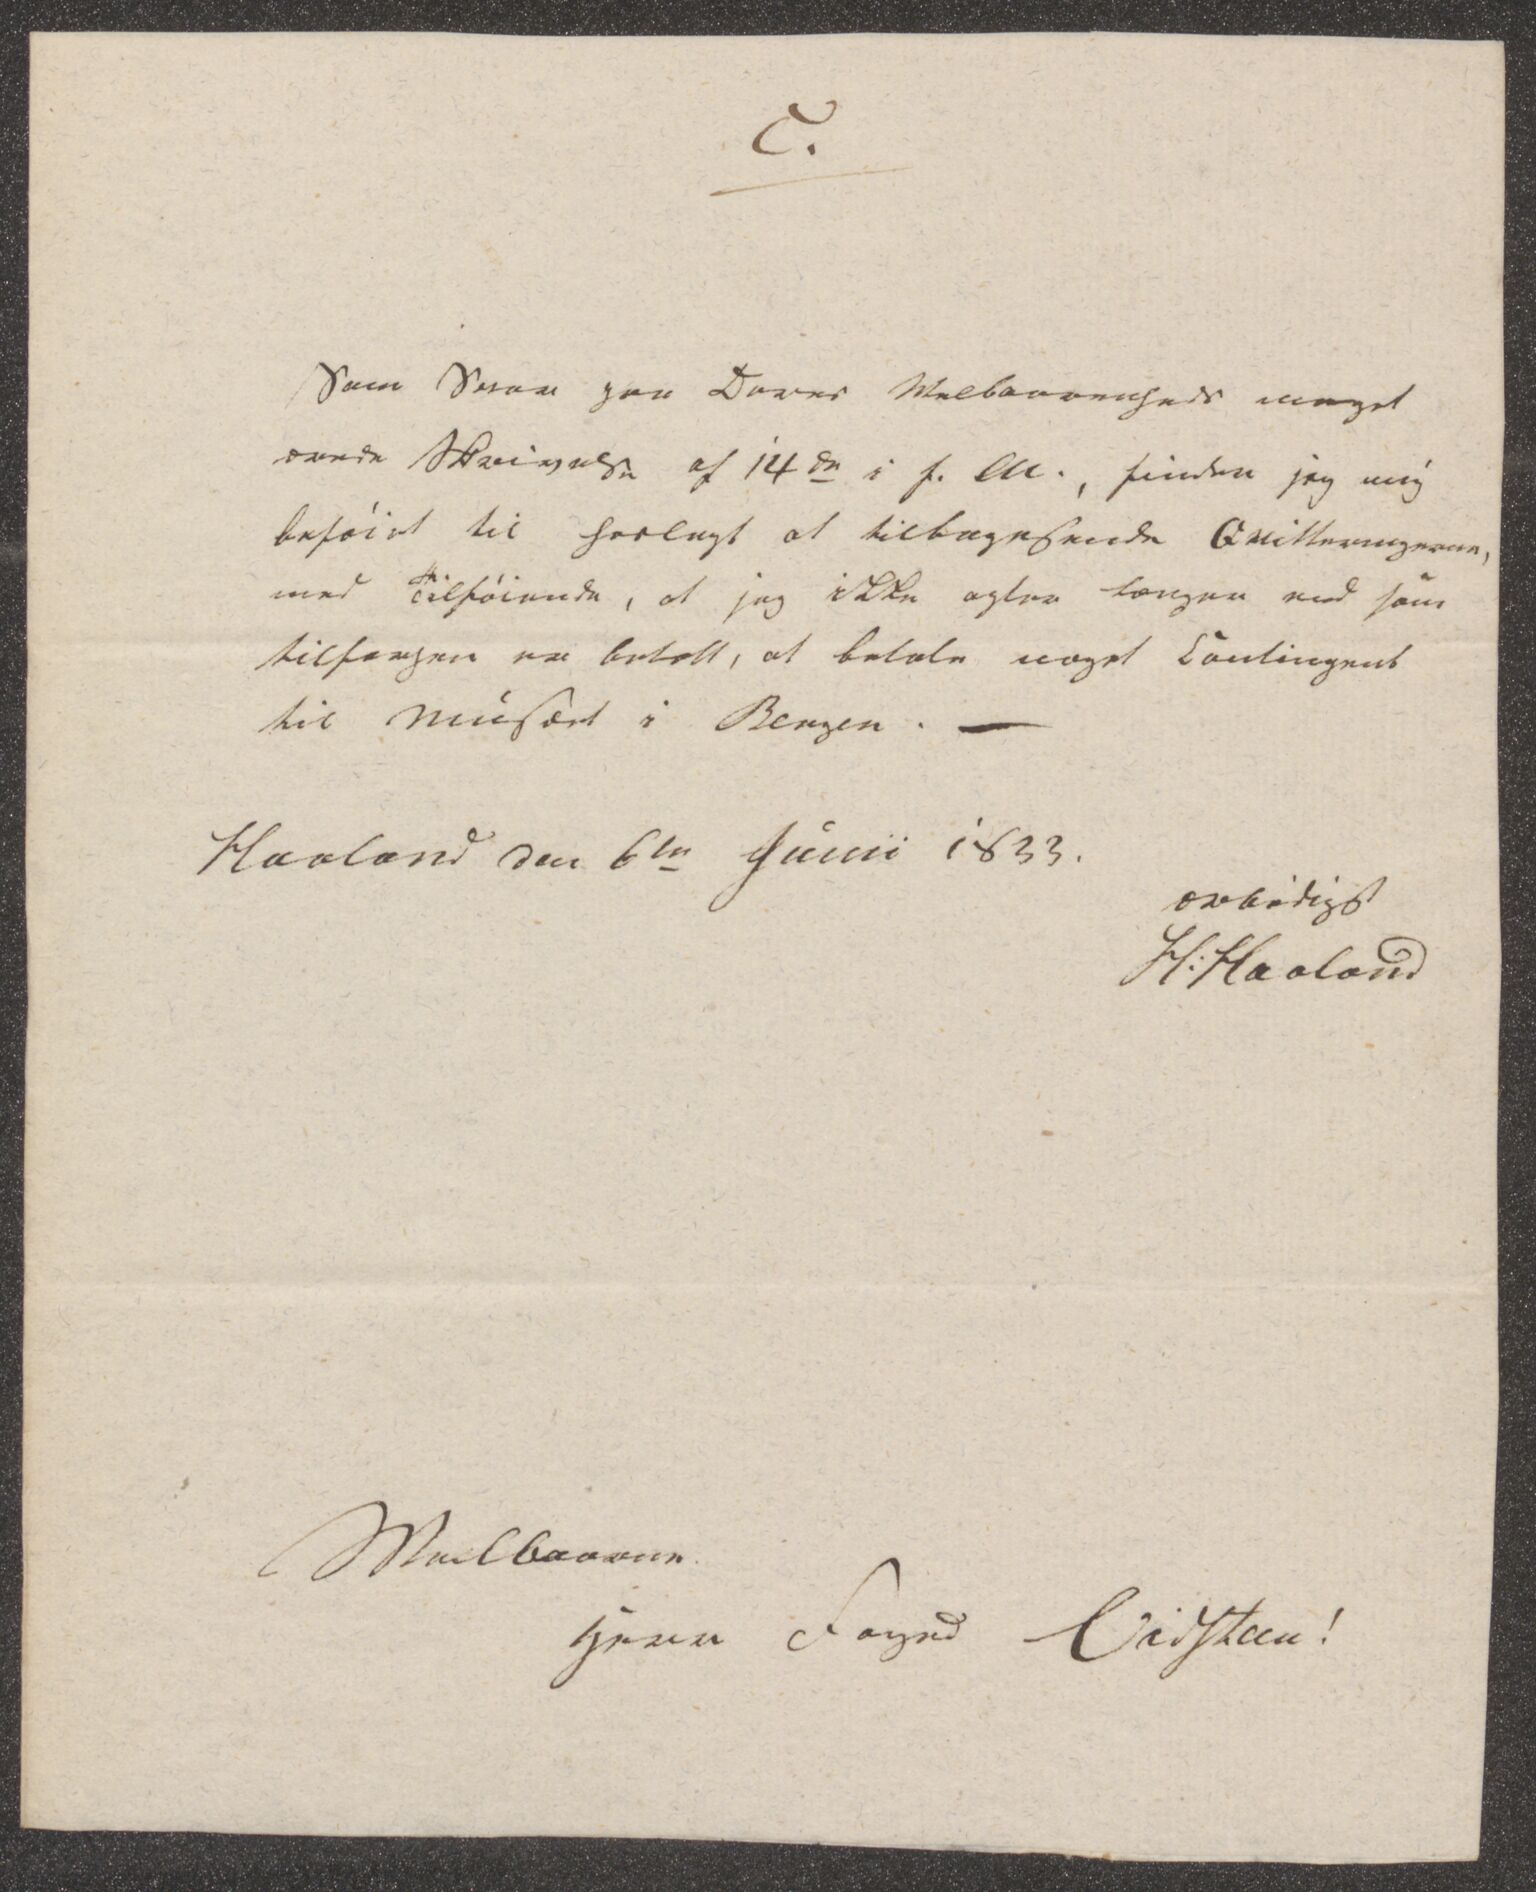 C.
Som Svar paa Deres Velbaarenheds meget
ærede Skrivelse af 14de i f. M., finder jeg mig
beføiet til hoslagt at tilbagesende Qvitteringerne,
med Tilføiende, at jeg ikke agter længer end som
tilforhen er betalt, at betale noget Contingent
til Musæet i Bergen. —
Haaland den 6te Junii 1833.
ærbødigst
H: Haaland
Velbaarne
Herr Foged Vidsteen!